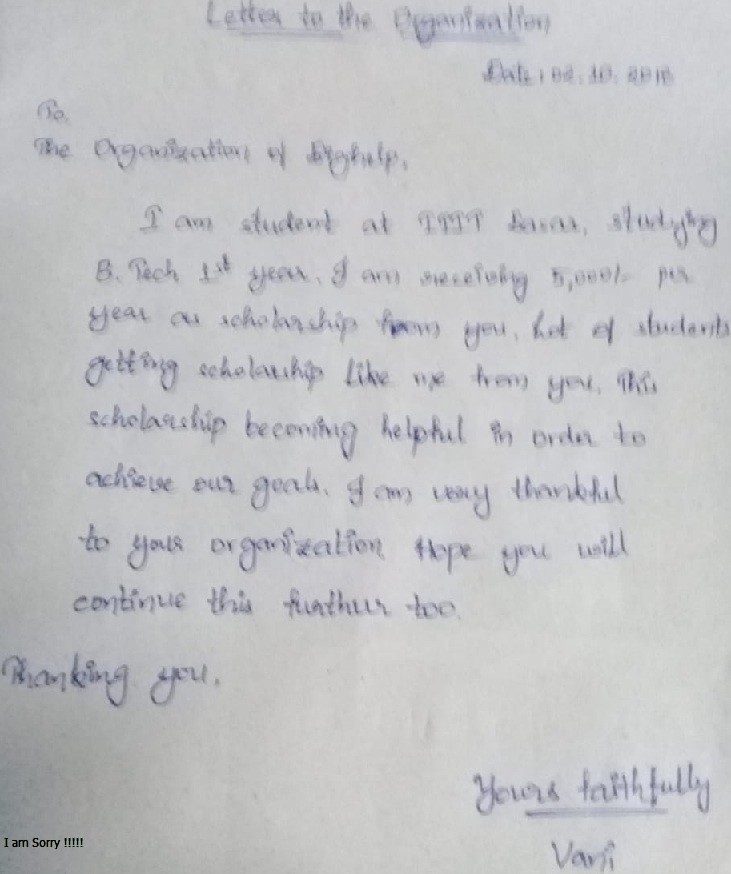 Letter to the Organization
Date: 02.10.2018
To,
The Organization of
I am student at IIIT Basar, studying
B. Tech 1st year. I am receiving 5,000/- per
year as scholarship from you. Lot of students
getting scholarship like me from you. This
scholarship becoming helpful in order to
achieve our goals. I am very thankful
to your organization. Hope you will
continue this furthur too.
Thanking you.
Yours faithfully
Vani
I am Sorry !!!!!